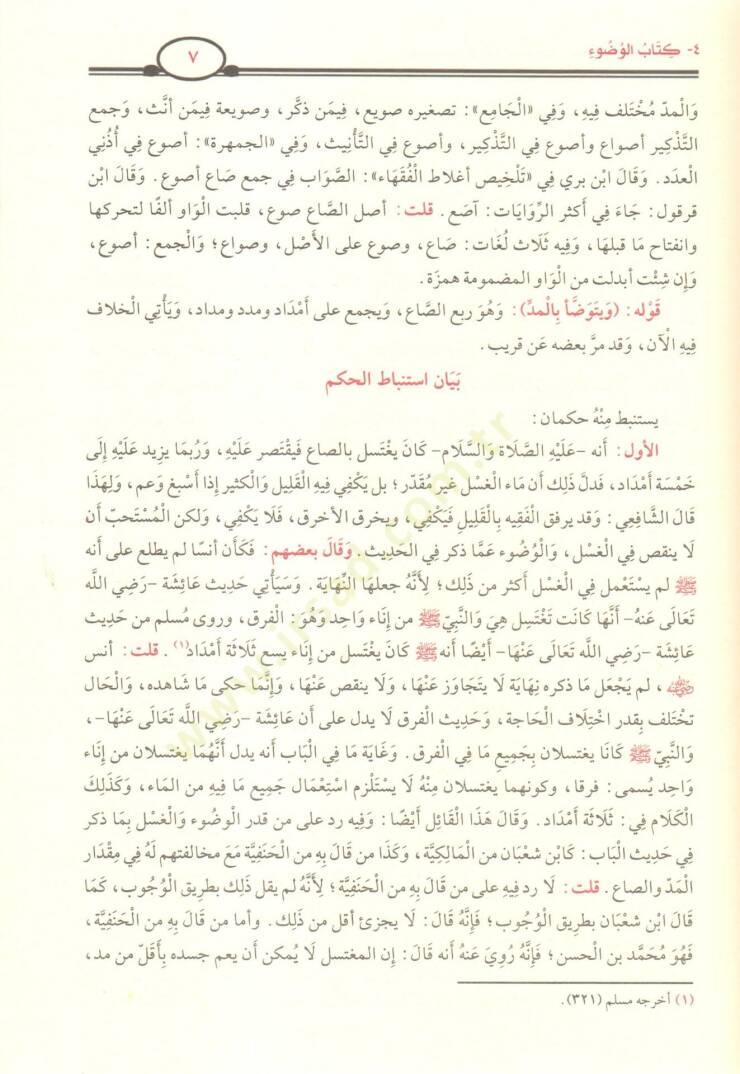 ٤- كِتَابُ الوُضُوءِ
٧
وَالْمدّ مُخْتَلف فِيهِ، وَفِي «الْجَامِع»: تصغيره صويع، فِيمَن ذكَّر، وصويعة فِيمَن أنَّث، وَجمع
التَّذْكِير أصواع وأصوع فِي التَّذْكِير، وأصوع فِي التَّأْنِيث، وَفِي «الجمهرة»: أصوع فِي أُذُنِي
الْعدَد. وَقَالَ ابْن بري فِي «تَلْخِيص أغلاط الْفُقَهَاء»: الصَّوَاب فِي جمع صَاع أصوع. وَقَالَ ابْن
قرقول: جَاءَ فِي أكثر الرِّوَايَات: آصَع. قلت: أصل الصَّاع صوع، قلبت الْوَاو ألفًا لتحركها
وانفتاح مَا قبلهَا، وَفِيه ثَلَاث لُغَات: صَاع، وصوع على الأَصْل، وصواع؛ وَالْجمع: أصوع،
وَإِن شِئْت أبدلت من الْوَاو المضمومة همزَة.
قَوْله: (وَيتَوَضَّأ بِالْمدِّ): وَهُوَ ربع الصَّاع، وَيجمع على أَمْدَاد ومدد ومداد، وَيَأْتِي الْخلاف
فِيهِ الْآن، وَقد مرَّ بعضه عَن قريب.
بَيَان استنباط الحكم
يستنبط مِنْهُ حكمان:
الأول: أنه -عَلَيْهِ الصَّلَاة وَالسَّلَام- كَانَ يغْتَسل بالصاع فَيقْتَصر عَلَيْهِ، وَرُبمَا يزِيد عَلَيْهِ إِلَى
خَمْسَة أَمْدَاد، فَدلَّ ذَلِك أَن مَاء الْغسْل غير مُقَدّر؛ بل يَكْفِي فِيهِ الْقَلِيل وَالْكثير إِذا أَسْبغ وَعم، وَلِهَذَا
قَالَ الشَّافِعِي: وَقد يرفق الْفَقِيه بِالْقَلِيلِ فَيَكْفِي، ويخرق الأخرق، فَلَا يَكْفِي، وَلَكِن الْمُسْتَحبّ أَن
لَا ينقص فِي الْغسْل، وَالْوُضُوء عَمَّا ذكر فِي الحَدِيث. وَقَالَ بعضهم: فَكَأَن أنسًا لم يطلع على أَنه
ﷺ لم يسْتَعْمل فِي الْغسْل أَكثر من ذَلِك؛ لِأَنَّهُ جعلهَا النِّهَايَة. وَسَيَأْتِي حَدِيث عَائِشَة -رَضِي الله
تَعَالَى عَنهُ- أَنَّهَا كَانَت تَغْتَسِل هِيَ وَالنَّبِيّ ﷺ من إِنَاء وَاحِد وَهُوَ: الْفرق، وروى مُسلم من حَدِيث
عَائِشَة -رَضِي الله تَعَالَى عَنْهَا- أَيْضًا أَنه ﷺ كَانَ يغْتَسل من إِنَاء يسع ثَلَاثَة أَمْدَاد(١). قلت: أنس
رضي الله عنه، لم يَجْعَل مَا ذكره نِهَايَة لَا يتَجَاوَز عَنْهَا، وَلَا ينقص عَنْهَا، وَإِنَّمَا حكى مَا شَاهده، وَالْحَال
تخْتَلف بِقدر اخْتِلَاف الْحَاجة، وَحَدِيث الْفرق لَا يدل على أَن عَائِشَة -رَضِي الله تَعَالَى عَنْهَا-،
وَالنَّبِيّ ﷺ كَانَا يغتسلان بِجَمِيعِ مَا فِي الْفرق. وَغَايَة مَا فِي الْبَاب أَنه يدل أَنَّهُمَا يغتسلان من إِنَاء
وَاحِد يُسمى: فرقا، وكونهما يغتسلان مِنْهُ لَا يسْتَلْزم اسْتِعْمَال جَمِيع مَا فِيهِ من المَاء، وَكَذَلِكَ
الْكَلَام فِي: ثَلَاثَة أَمْدَاد. وَقَالَ هَذَا الْقَائِل أَيْضًا: وَفِيه رد على من قدر الْوضُوء وَالْغسْل بِمَا ذكر
فِي حَدِيث الْبَاب: كَابْن شعْبَان من الْمَالِكِيَّة، وَكَذَا من قَالَ بِهِ من الْحَنَفِيَّة مَعَ مخالفتهم لَهُ فِي مِقْدَار
الْمَدّ والصاع. قلت: لَا رد فِيهِ على من قَالَ بِهِ من الْحَنَفِيَّة؛ لِأَنَّهُ لم يقل ذَلِك بطرِيق الْوُجُوب، كَمَا
قَالَ ابْن شعْبَان بطرِيق الْوُجُوب؛ فَإِنَّهُ قَالَ: لَا يجزئ أقل من ذَلِك. وأما من قَالَ بِهِ من الْحَنَفِيَّة،
فَهُوَ مُحَمَّد بن الْحسن؛ فَإِنَّهُ رُوِيَ عَنهُ أَنه قَالَ: إِن المغتسل لَا يُمكن أَن يعم جسده بِأَقَلّ من مد،
(١) أخرجه مسلم (٣٢١).